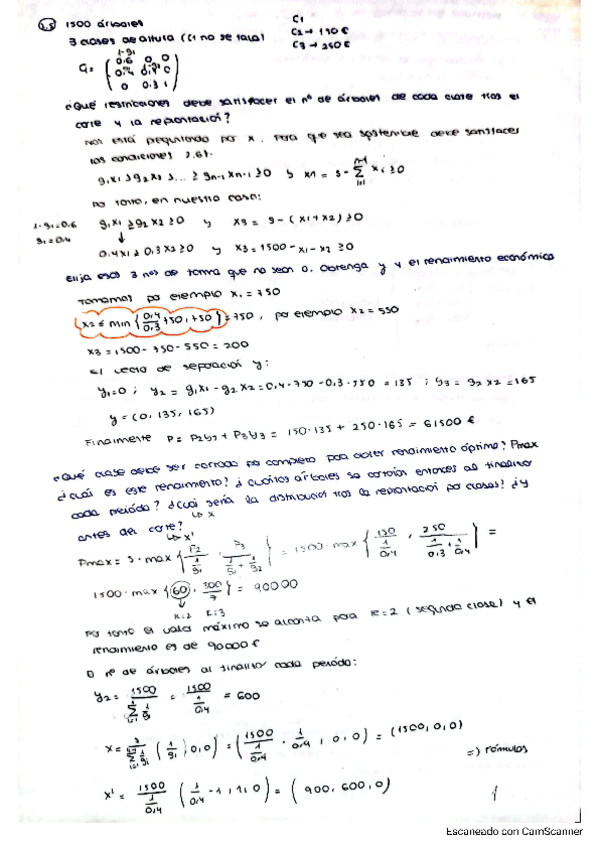 3.5 1500 árboles
3 clases de altura (C1 no se tala)
C1
C2 → 150 €
C3 → 250 €
1-g1
G = ( 0,6 0 0
0,4 0,7 0
0 0,3 1 )
¿Qué restricciones debe satisfacer el nº de árboles de cada clase tras el
corte y la replantación?
Nos está preguntando por x. Para que sea sostenible debe satisfacer
las condiciones 2.6):
g1x1 ≥ g2x2 ≥ ... ≥ gn-1 xn-1 ≥ 0 y xn = s - Σ xi ≥ 0
n-1
i=1
Por tanto, en nuestro caso:
1-g1=0,6
g1=0,4
g1x1 ≥ g2x2 ≥ 0 y x3 = s - (x1+x2) ≥ 0
↓
0,4x1 ≥ 0,3x2 ≥ 0 y x3 = 1500 - x1 - x2 ≥ 0
Elija esos 3 nos de forma que no sean 0. Obtenga y y el rendimiento económico
Tomamos por ejemplo x1 = 750
x2 ≤ min { 0,4/0,3 750, 750 } = 750, por ejemplo x2 = 550
x3 = 1500 - 750 - 550 = 200
El vector de separación y:
y1=0 ; y2 = g1x1 - g2x2 = 0,4·750 - 0,3·550 = 135 ; y3 = g2x2 = 165
y = (0, 135, 165)
Finalmente P = P2y2 + P3y3 = 150·135 + 250·165 = 61500 €
¿Qué clase debe ser cortada por completo para obtener rendimiento óptimo? Pmax
¿Cuál es este rendimiento? ¿Cuántos árboles se cortarían entonces al finalizar
cada periodo? ¿Cuál sería la distribución tras la replantación por clases? ¿y
↳ x
antes del corte?
↳ x'
Pmax = s · max { P2 / 1/g1 , P3 / 1/g1 + 1/g2 } = 1500 · max { 150 / 1/0,4 , 250 / 1/0,3 + 1/0,4 } =
1500 · max { 60 , 300/7 } = 90000
↓
k=2 k=3
Por tanto el valor máximo se alcanza para k=2 (segunda clase) y el
rendimiento es de 90000 €
El nº de árboles al finalizar cada periodo:
y2 = 1500 / Σ 1/gi = 1500 / 1/0,4 = 600
x = s / Σ 1/gi ( 1/g1 , 0, 0 ) = ( 1500 / 1/0,4 · 1/0,4 , 0, 0 ) = (1500, 0, 0)
=) fórmulas
x' = 1500 / 1/0,4 ( 1/0,4 - 1, 1, 0 ) = ( 900, 600, 0 )
Escaneado con CamScanner